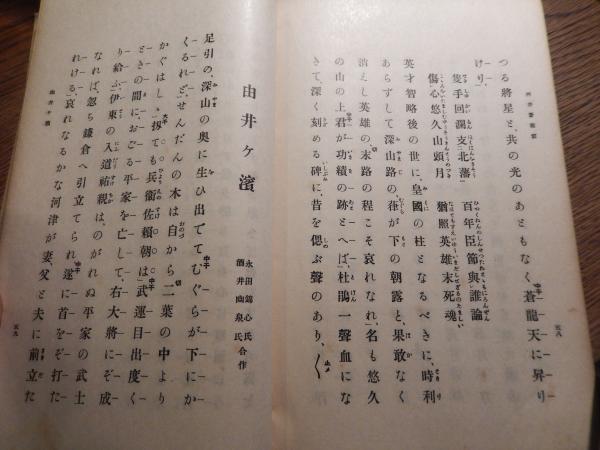 つる將星と、共の光のあともなく、蒼龍天に昇り
けり、
隻手回瀾支北藩 百年臣節與誰論
傷心悠久山頭月 猶照英雄未死魂
英才智略後の世に、皇國の柱となるべきに、時利
あらずして深山路の、葎が下の朝露と、果敢なく
消えし英雄の末路の程こそ哀れなれ」名も悠久
の山の上君が功績の跡とへば、杜鵑一聲血にな
きて、深く刻める碑に、昔を偲ぶ聲のあり、
五八
由井ヶ濱
永田錦心氏
酒井幽泉氏
合作
足引の、深山の奥に生ひ出てゝむぐらが下にか
くるれど、せんだんの木は自から二葉の中より
かぐはしゝ扨ても兵衛佐賴朝は武運目出度く
ときの間に、おごる平家を亡して、右大將にぞ成
り給ふ、伊東の入道祐親は、のがれぬ平家の武士
なれば、忽ち鎌倉へ引立てられ、遂に首をぞ打た
れける、哀れなるかな河津が妻、父と夫に前立た
由井ヶ濱
五九